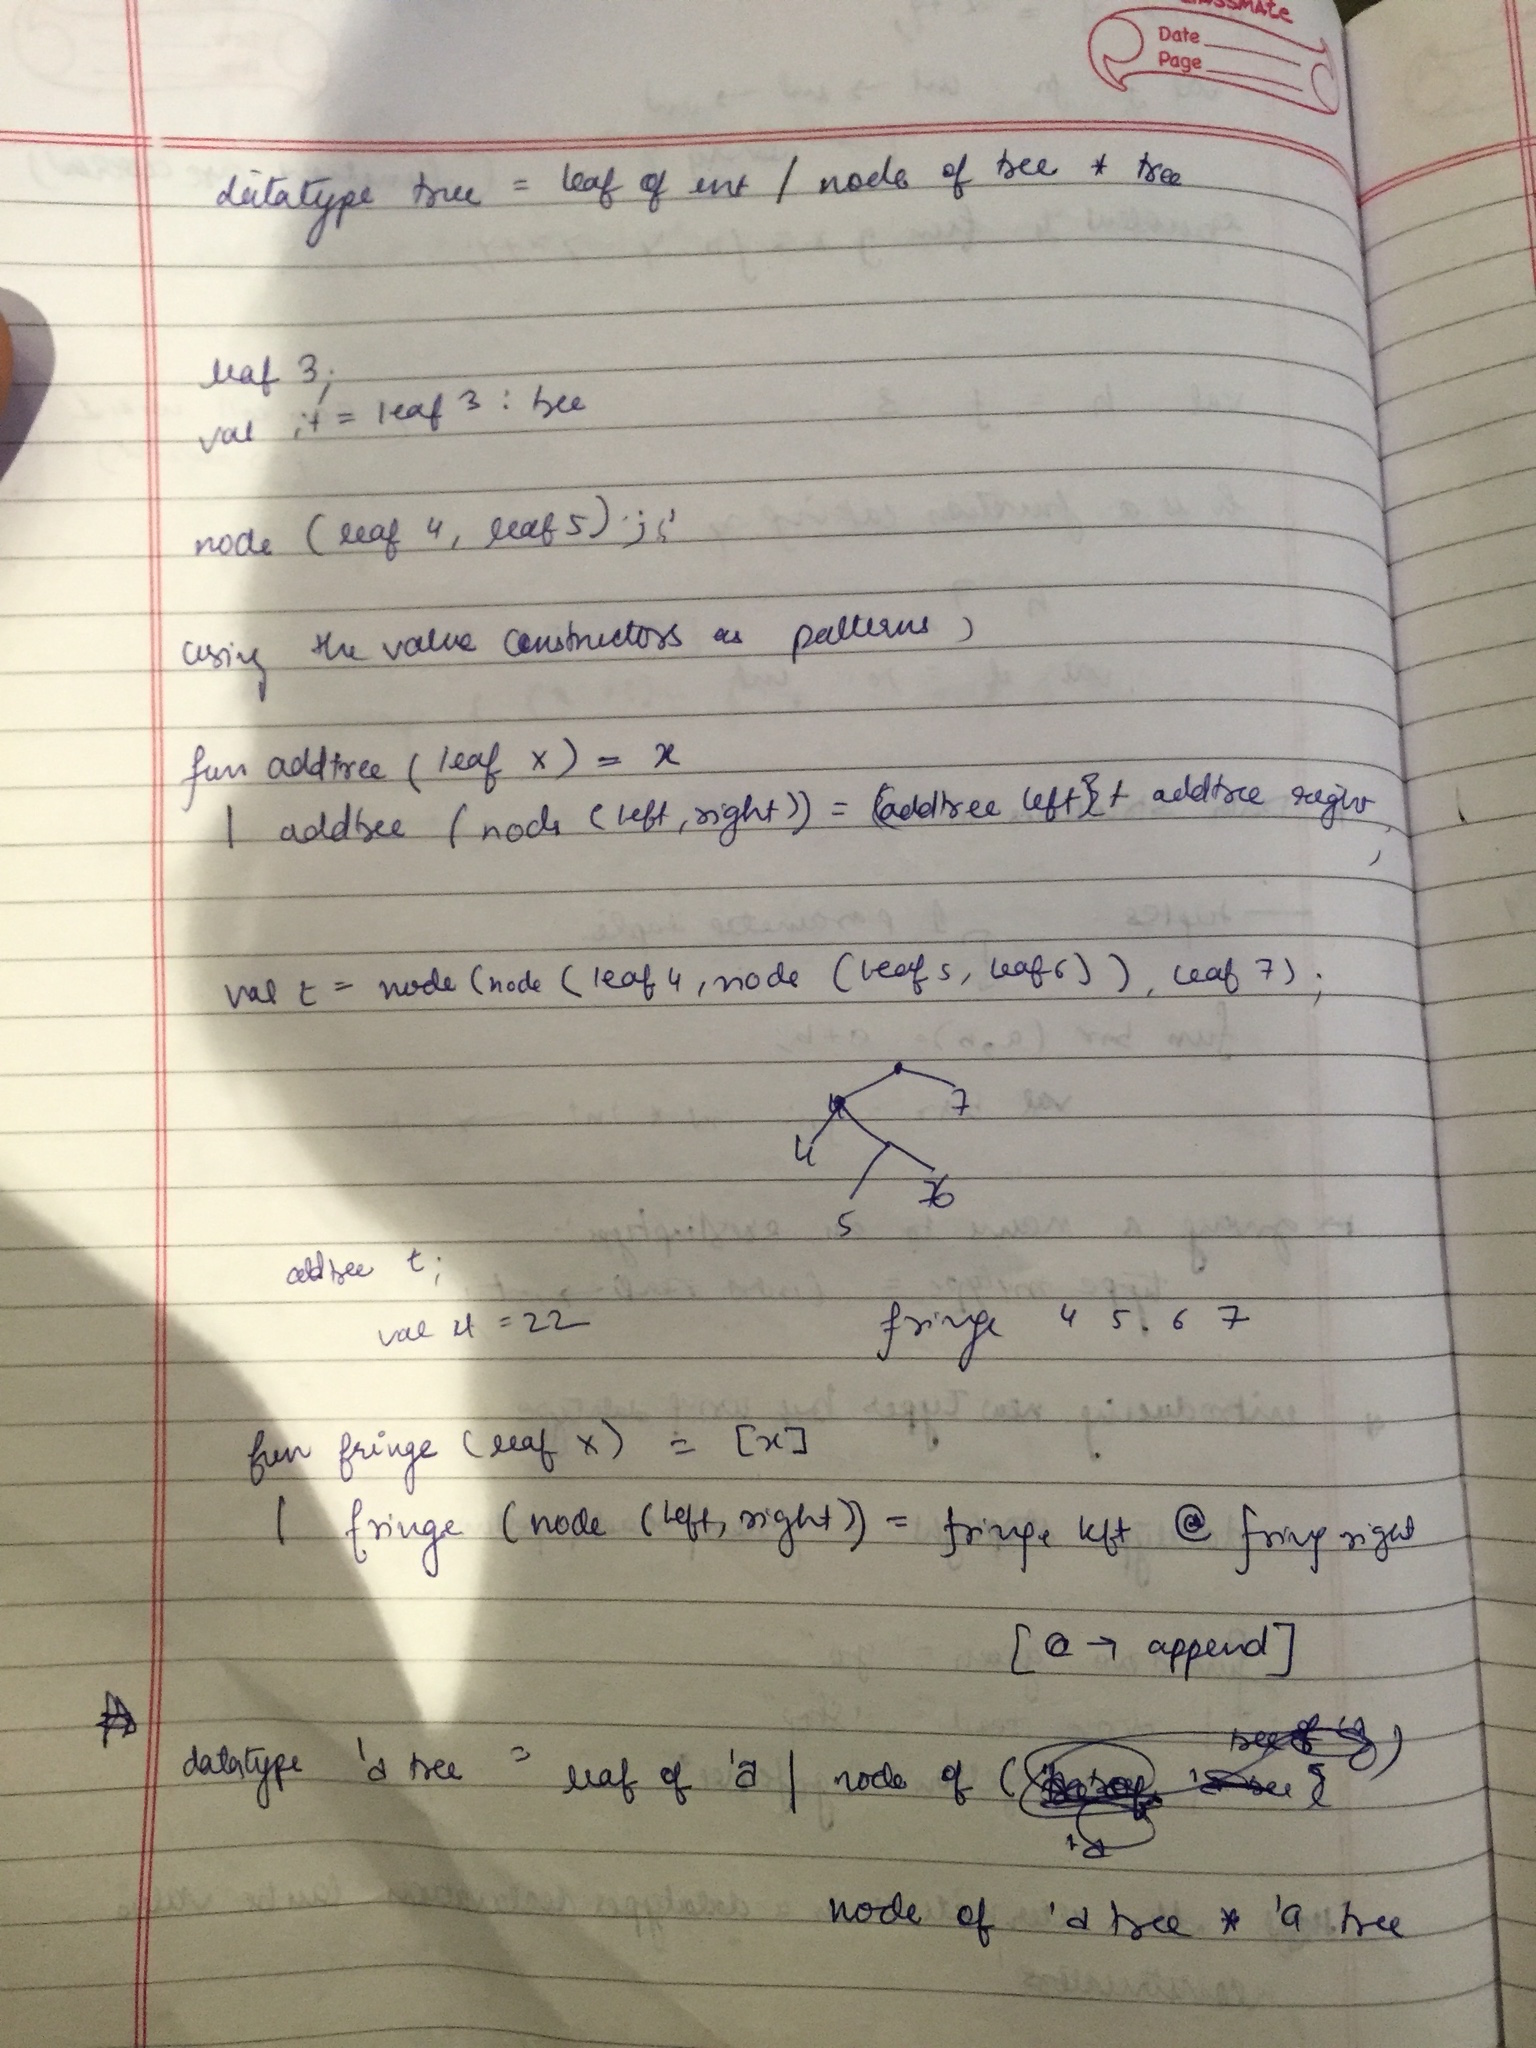 classmate
Date
Page
datatype tree = leaf of int / node of tree * tree
leaf 3;
val it = leaf 3 : tree
node (leaf 4, leaf 5);
using the value constructors as patterns,
fun addtree (leaf x) = x
| addtree (node (left, right)) = (addtree left) + addtree right,
val t = node (node (leaf 4, node (leaf 5, leaf 6)), leaf 7);
7
4
5 6
addtree t;
val it = 22
fringe 4 5. 6 7
fun fringe (leaf x) = [x]
| fringe (node (left, right)) = fringe left @ fring right
[@ → append]
datatype 'a tree = leaf of 'a | node of (
'a
node of 'a tree * 'a tree